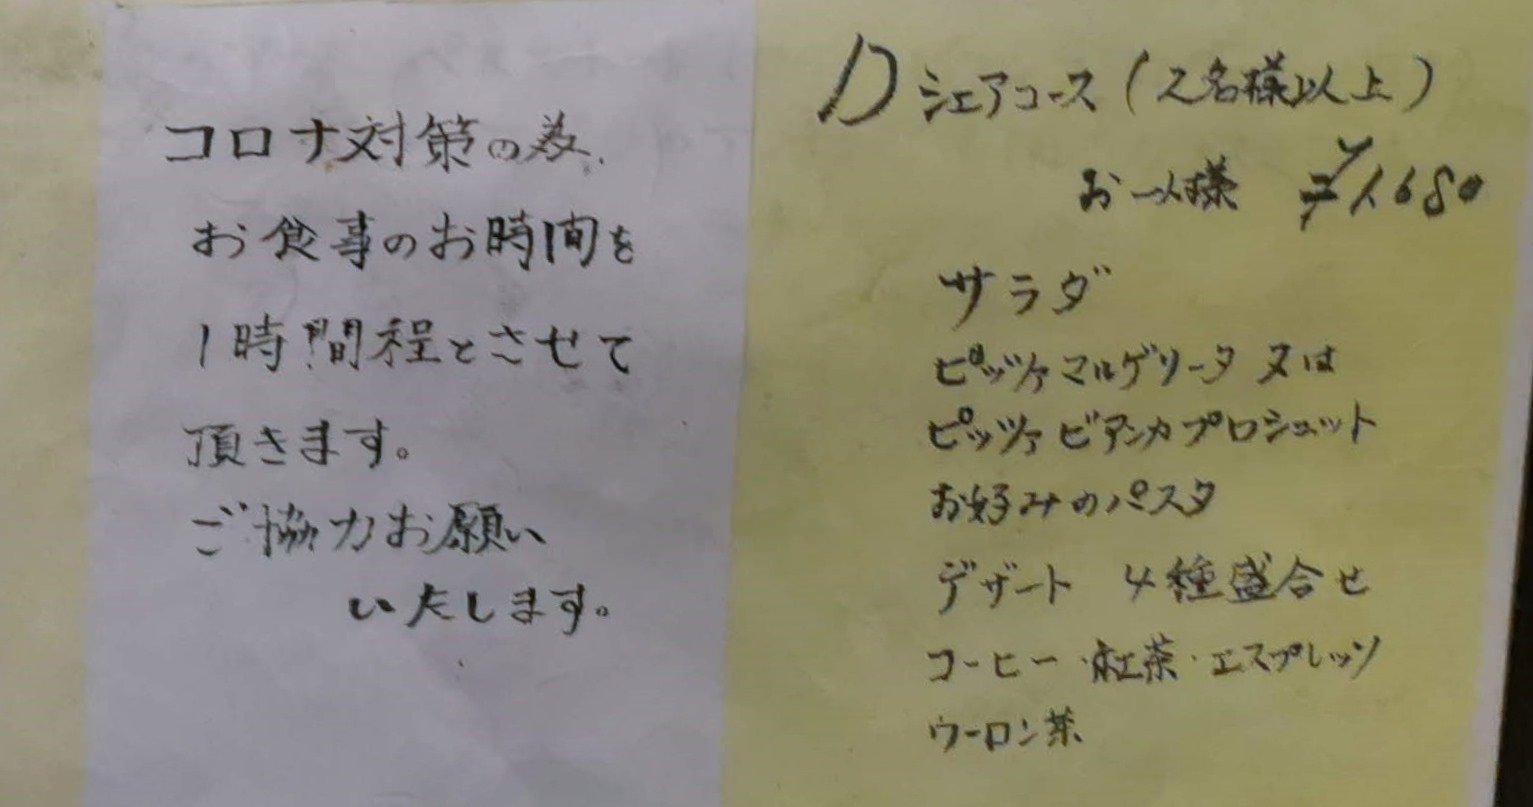 コロナ対策の為、
お食事のお時間を
1時間程とさせて
頂きます。
ご協力お願い
いたします。
D シェアコース(2名様以上)
お一人様 ¥1,680
サラダ
ピッツァ マルゲリータ 又は
ピッツァ ビアンカプロシュット
お好みのパスタ
デザート 4種盛合せ
コーヒー・紅茶・エスプレッソ
ウーロン茶